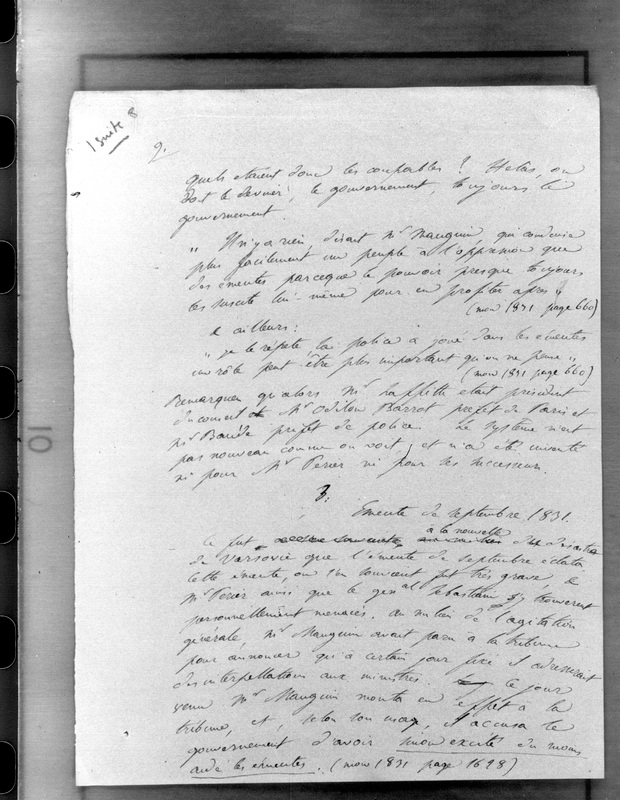 1 suite 8
2.
quels etaient donc les coupables ? Helas, on
doit le deviner, le gouvernement, toujours le
gouvernement.
" Il n'y a rien, disait Mr Mauguin, qui conduise
plus facilement un peuple à l'oppression que
des émeutes parceque le pouvoir presque toujours
les suscite lui même pour en profiter après "
(mon 1831 page 660)
& ailleurs :
" je le répète, la police a joué dans les émeutes
un rôle peut être plus important qu'on ne pense "
(mon 1831 page 660)
Remarquez qu'alors Mr Laffitte etait président
du conseil Mr Odilon Barrot prefet de Paris et
Mr Baude préfet de police. Le système n'est
pas nouveau comme on voit ; et n'a été inventé
ni pour Mr Perier ni pour ses successeurs.
3.
Emeute de septembre 1831.
Ce fut à la nouvelle du désastre
de Varsovie que l'émeute de septembre éclata
cette émeute, on s'en souvient fut très grave, &
Mr Perier ainsi que le genal Sebastiani s'y trouverent
personnellement menacés. au milieu de l'agitation
générale, Mr Mauguin avait paru à la tribune
pour annoncer qu'à certain jour fixe il adresserait
des interpellations aux ministres. le jour
venu Mr Mauguin monta en effet à la
tribune, et, selon son usage, il accusa le
gouvernement d'avoir sinon excité du moins
aidé les émeutes. (mon 1831 page 1628)
10